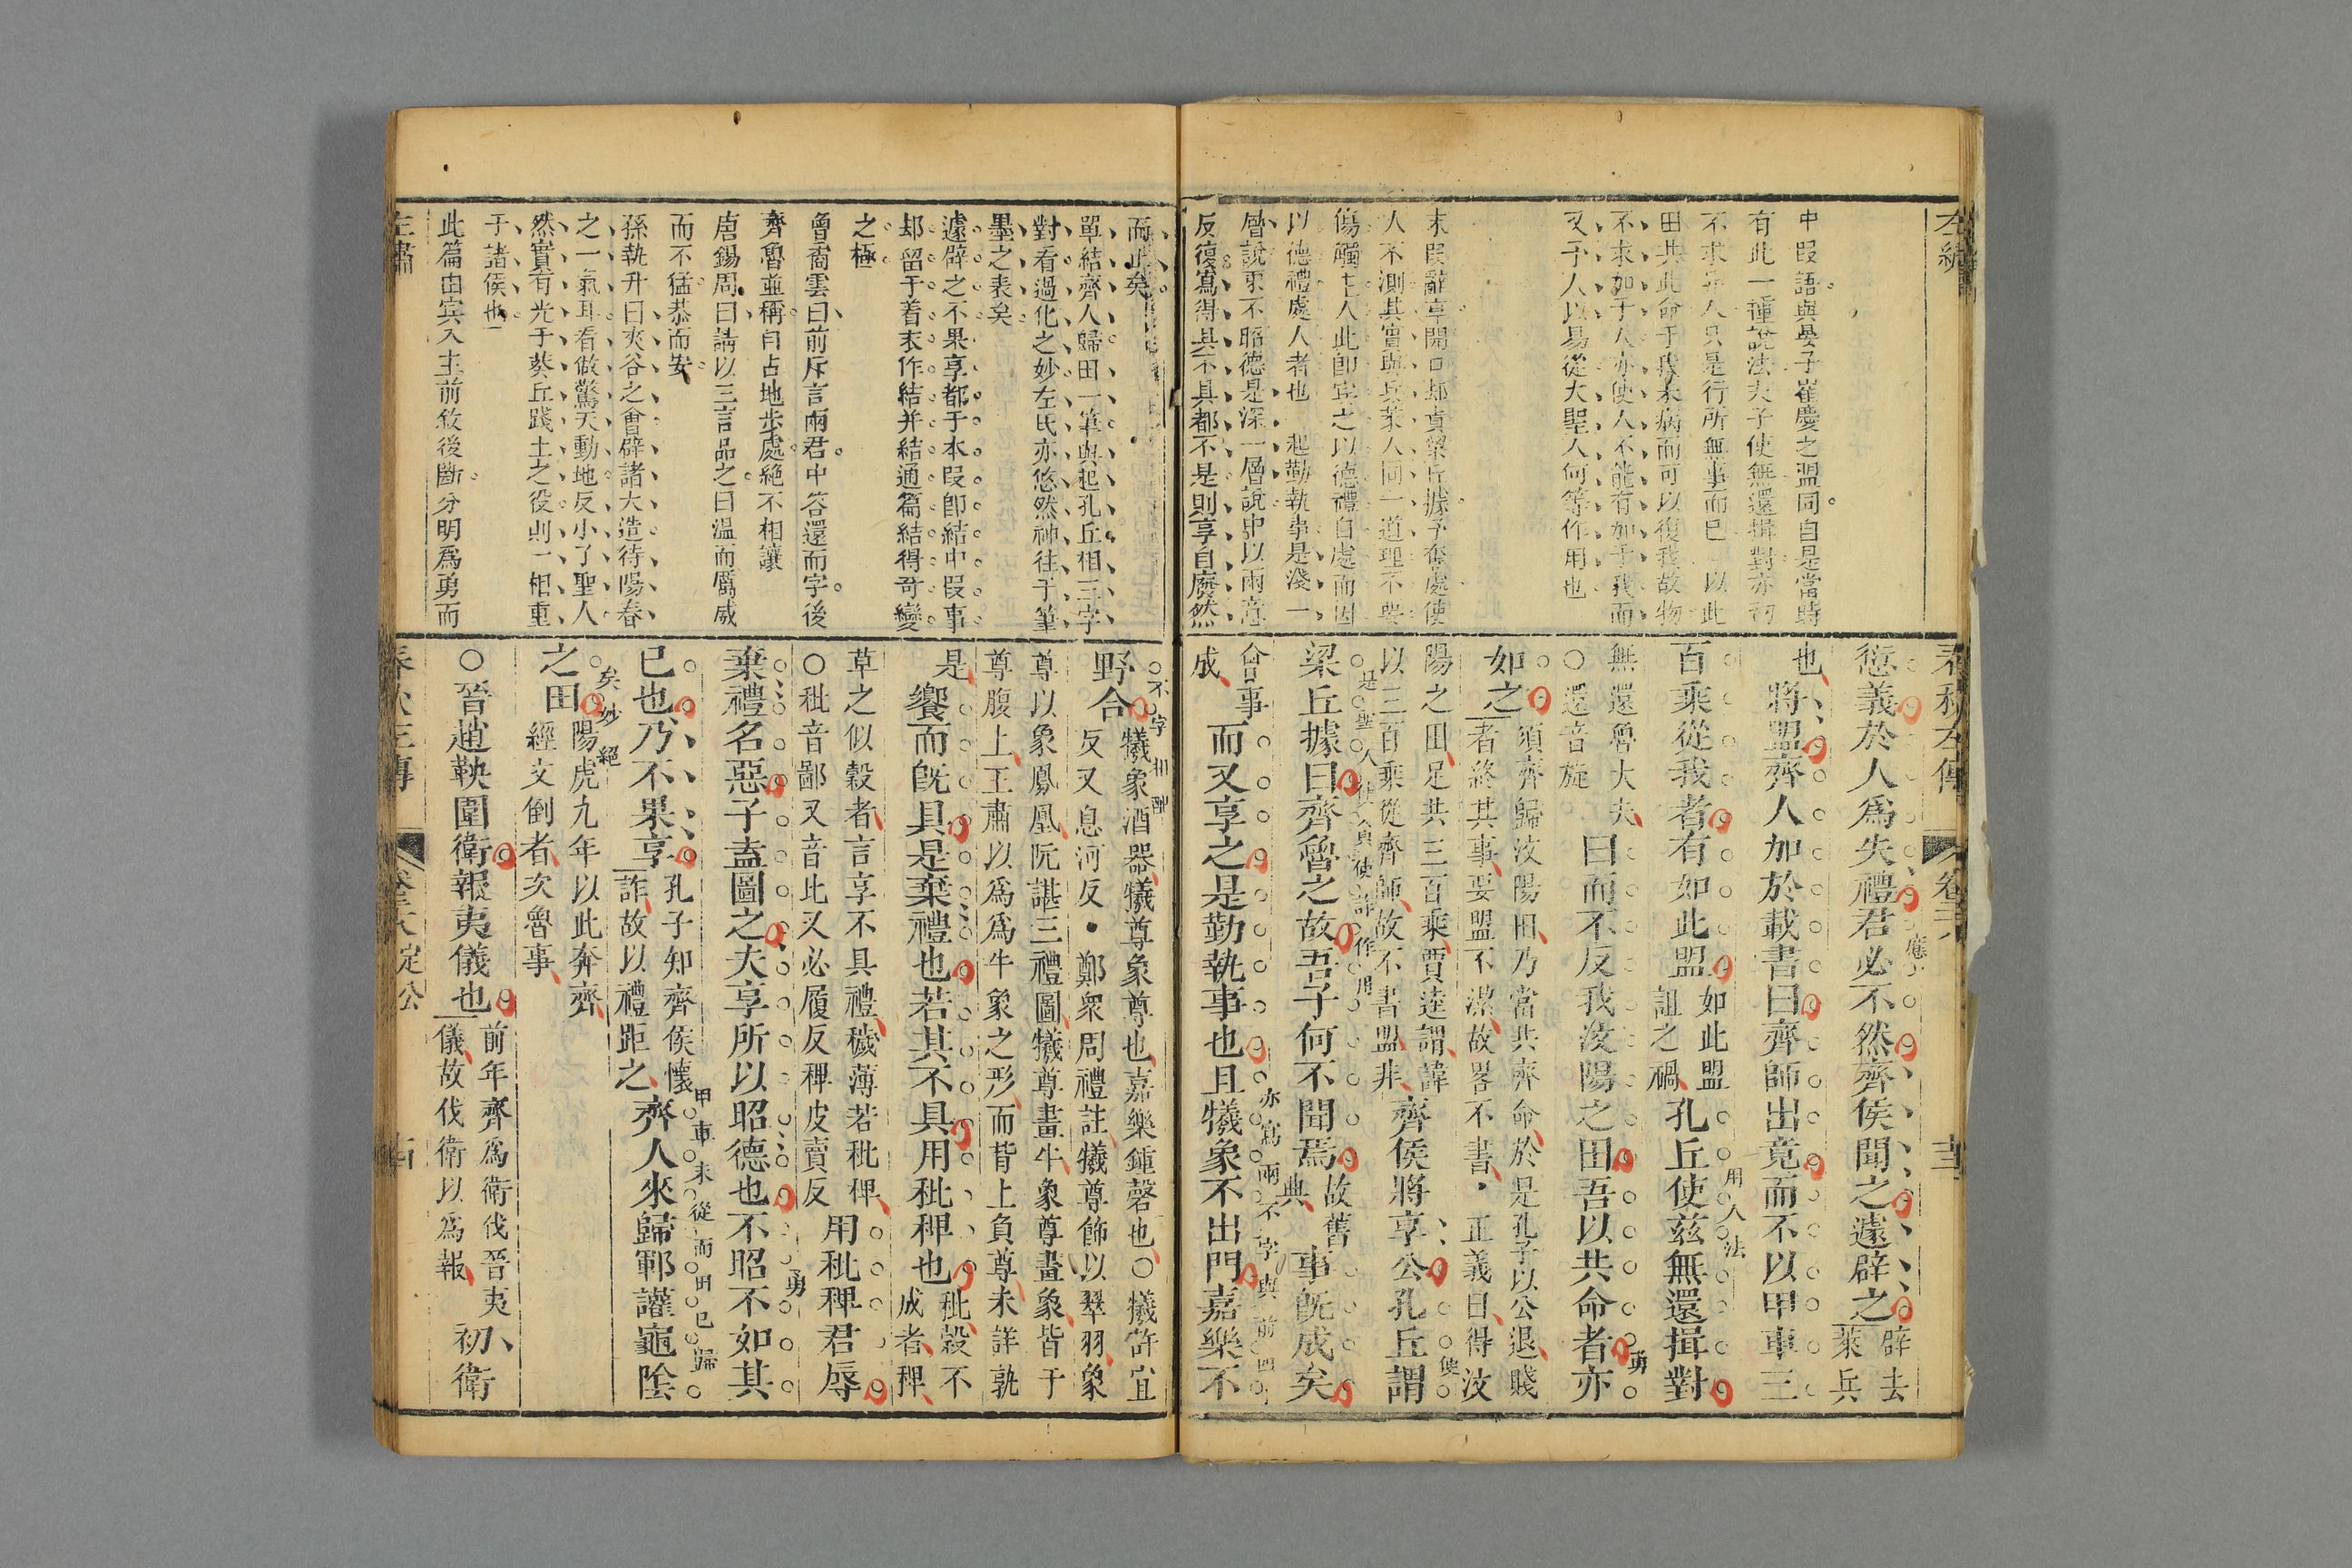 左繡
中段語與晏子崔慶之盟同自是當時
有此一種說法夫子使無還揖對亦初
不求異人只是行所無事而已 以此
田共此命于我未病而可以復我故物
不求加于人亦使人不能有加于我而
又予人以易從大聖人何等作用也
末段辭享開口却責梁丘據予奪處使
人不測其實與兵萊人同一道理不要
傷觸主人此卽宾之以德禮自處而因
以德禮處人者也 起勤執事是淺一
層說束不昭德是深一層說中以兩意
反復寫得具不具都不是則享自廢然
春秋左傳 卷二八 十三
愆義於人為失禮君必不然齊侯聞之遽辟之
辟去
萊兵
也將盟齊人加於載書曰齊師出竟而不以甲車三
百乘從我者有如此盟
如此盟
詛之禍
孔丘使茲無還揖對
無還魯大夫
○還音旋
曰而不反我汶陽之田吾以共命者亦
如之
須齊歸汶陽田乃當共齊命於是孔子以公退賤
者終其事要盟不潔故畧不書 正義曰得汶
陽之田足共三百乘賈逵謂諱
以三百乘從齊師故不書盟非
齊侯將享公孔丘謂
梁丘據曰齊魯之故吾子何不聞焉
故舊
典
事旣成矣
會事
成
而又享之是勤執事也且犧象不出門嘉樂不
而止矣
單結齊人歸田一筆與起孔丘相三字
對看過化之妙左氏亦悠然神往于筆
墨之表矣
遽辟之不果享都于本段卽結中段事
却留于着末作結并結通篇結得奇變
之極
魯喬雲曰前斥言兩君中容還而字後
齊魯並稱自占地步處絕不相讓
唐錫周曰請以三言品之曰温而厲威
而不猛恭而安
孫執升曰夾谷之會辟諸大造待陽春
之一氣耳看做驚天動地反小了聖人
然實有光于葵丘踐土之役則一相重
于諸侯也
此篇由宾入主前敘後斷分明爲勇而
野合
犧象酒器犧尊象尊也嘉樂鍾磬也○犧許宜
反又息河反 鄭衆周禮註犧尊飾以翠羽象
尊以象鳳凰阮諶三禮圖犧尊畫牛象尊畫象皆于
尊腹上王肅以為爲牛象之形而背上負尊未詳孰
是
饗而旣具是棄禮也若其不具用秕稗也
秕穀不
成者稗
草之似穀者言享不具禮穢薄若秕稗
○秕音鄙又音比又必履反稗皮賣反
用秕稗君辱
棄禮名惡子盍圖之夫享所以昭德也不昭不如其
已也乃不果享
孔子知齊侯懷
詐故以禮距之
齊人來歸鄆讙龜陰
之田
陽虎九年以此奔齊
經文倒者次魯事
○晉趙鞅圍衛報夷儀也
前年齊爲衛伐晉夷
儀故伐衛以爲報
初衛
左繡
春秋左傳 定公 十四